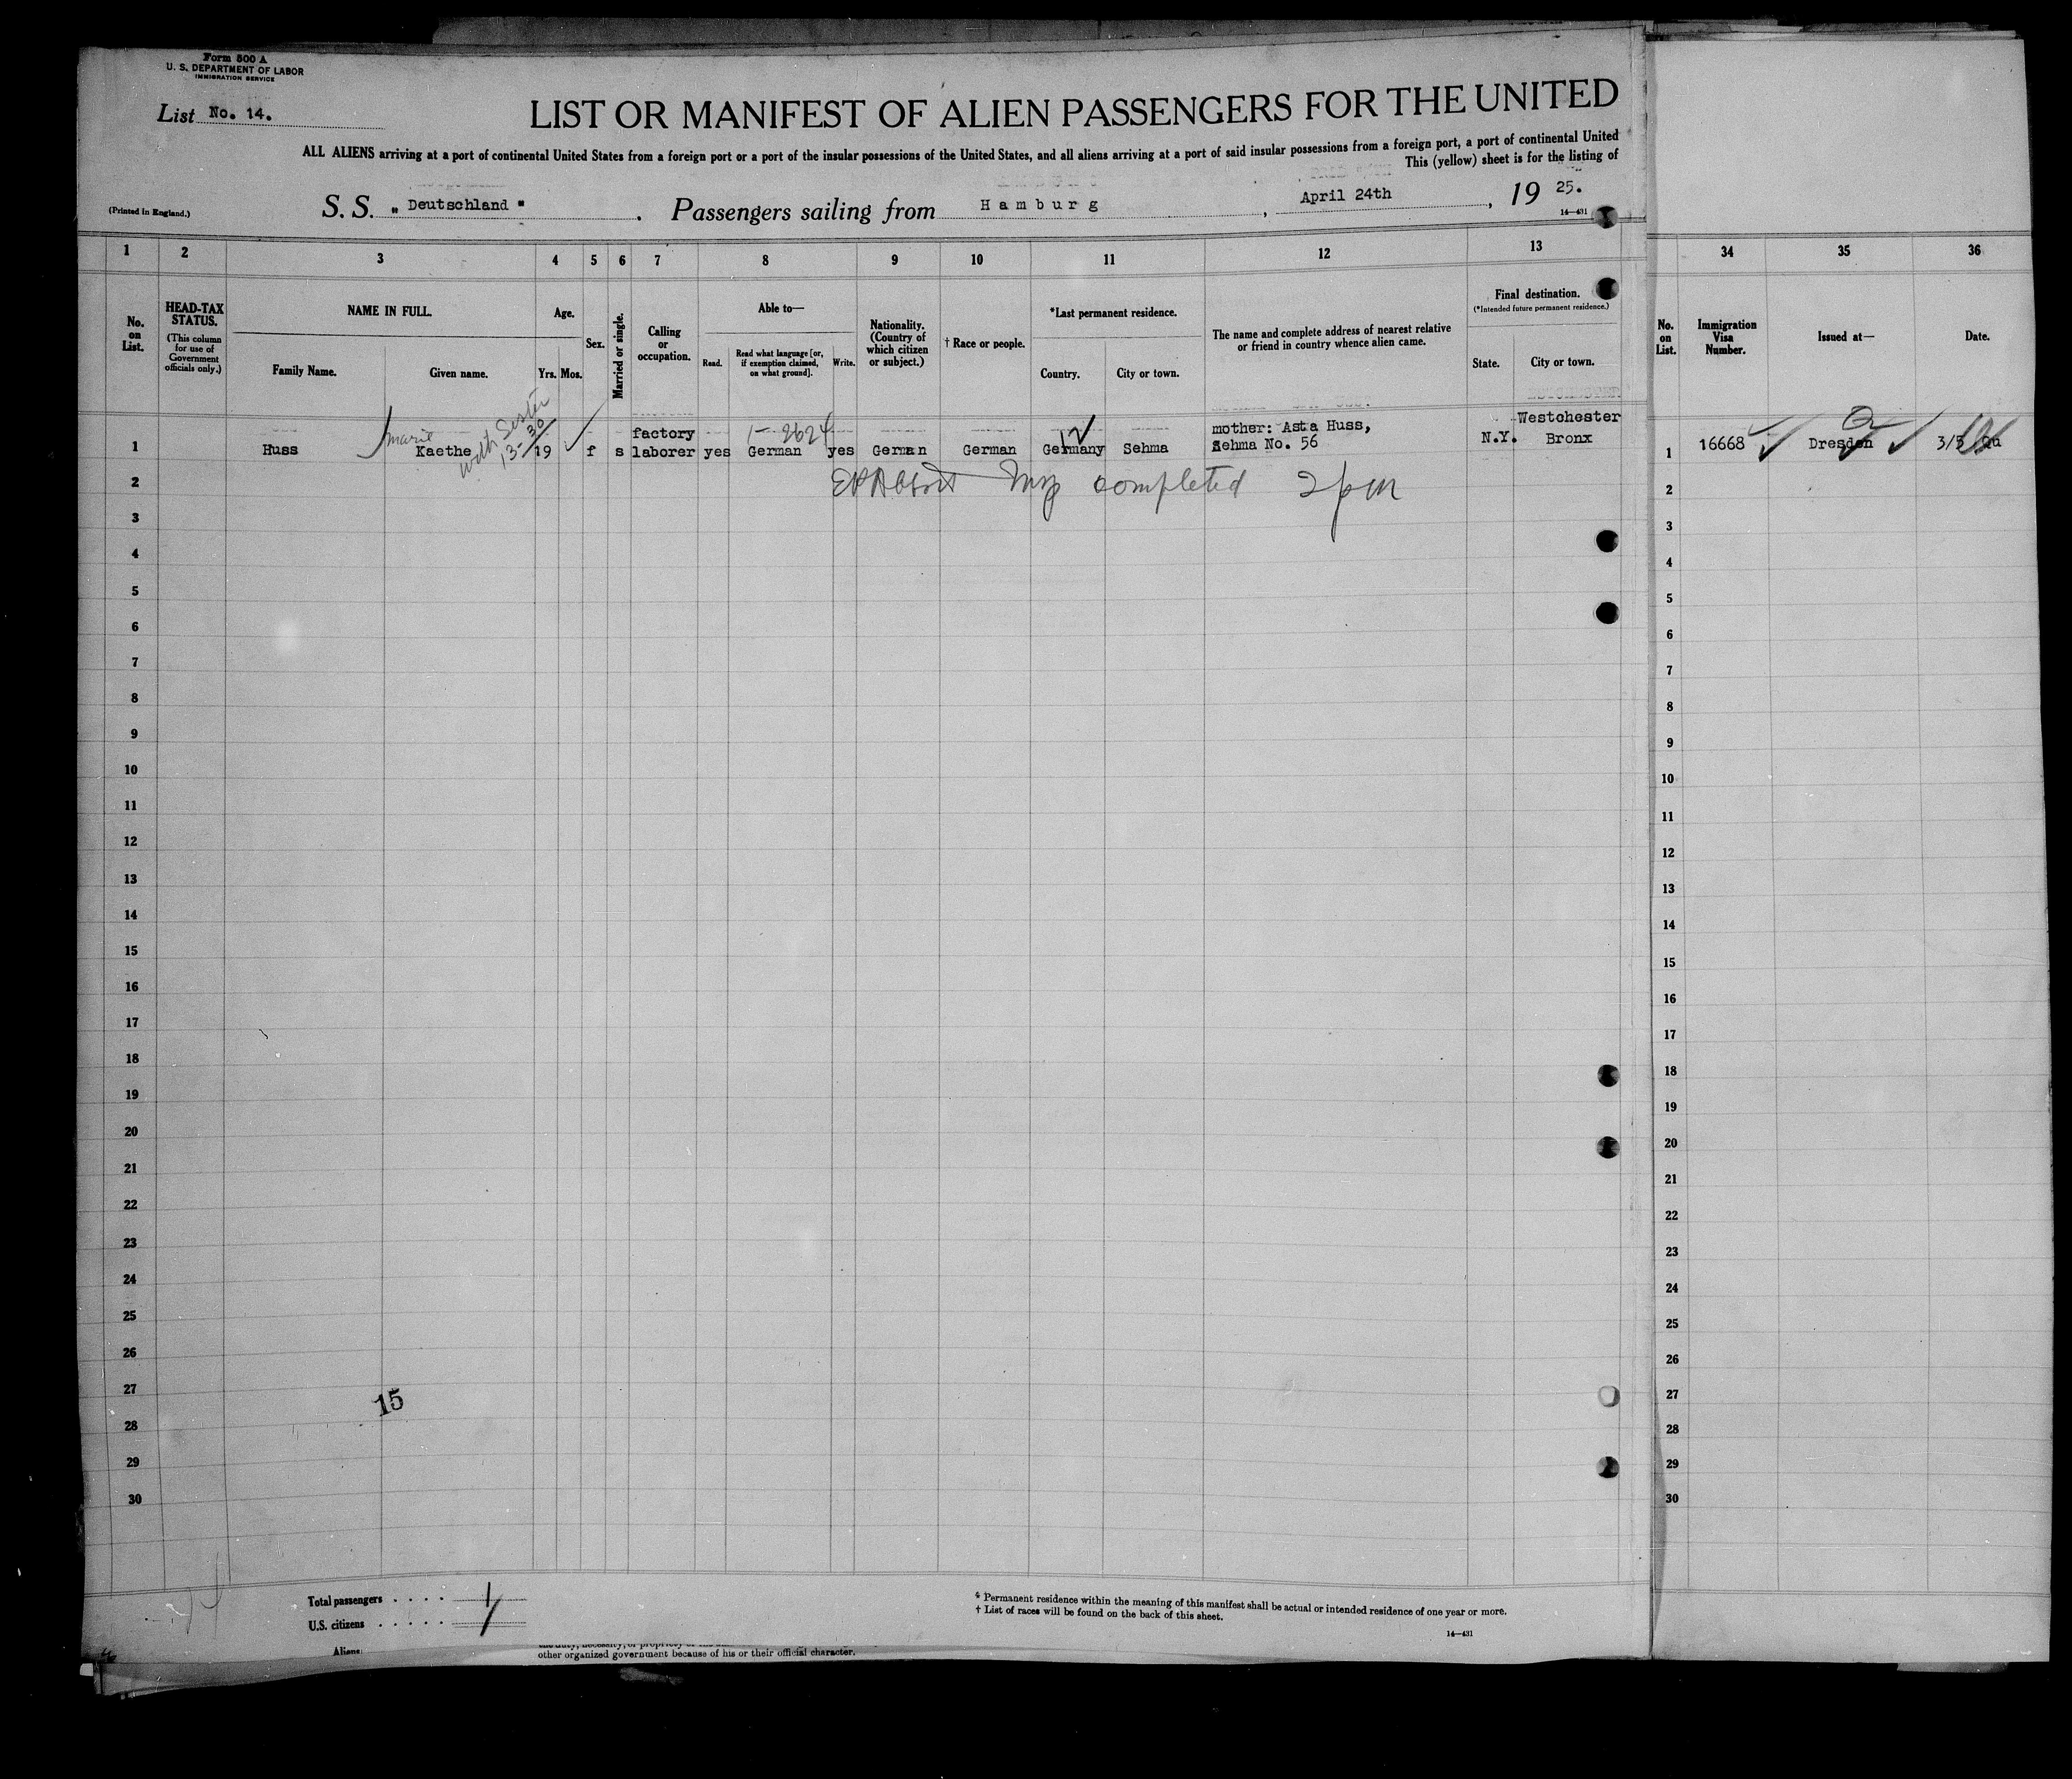 Form 500 A
U. S. DEPARTMENT OF LABOR
IMMIGRATION SERVICE
List No. 14.
LIST OR MANIFEST OF ALIEN PASSENGERS FOR THE UNITED
ALL ALIENS arriving at a port of continental United States from a foreign port or a port of the insular possessions of the United States, and all aliens arriving at a port of said insular possessions from a foreign port, a port of continental United
This (yellow) sheet is for the listing of
(Printed in England.)
S. S. „ Deutschland " . Passengers sailing from Hamburg , April 24th , 19 25.
14—431
1 2 3 4 5 6 7 8 9 10 11 12 13 34 35 36
No. on List.
HEAD-TAX STATUS.
(This column for use of Government officials only.)
NAME IN FULL.
Family Name. Given name.
Age.
Yrs. Mos.
Sex.
Married or single.
Calling or occupation.
Able to—
Read. Read what language [or, if exemption claimed, on what ground]. Write.
Nationality. (Country of which citizen or subject.)
† Race or people.
*Last permanent residence.
Country. City or town.
The name and complete address of nearest relative or friend in country whence alien came.
Final destination.
(*Intended future permanent residence.)
State. City or town.
No. on List.
Immigration Visa Number.
Issued at—
Date.
1 Huss Marie Kaethe with Sister 13-30 19 f s factory laborer yes German yes German German Germany Sehma mother: Asta Huss, Sehma No. 56 N.Y. Westchester Bronx
1 16668 Dresden 3/5
1- 2624
12
completed 2 pm
2 2
3 3
4 4
5 5
6 6
7 7
8 8
9 9
10 10
11 11
12 12
13 13
14 14
15 15
16 16
17 17
18 18
19 19
20 20
21 21
22 22
23 23
24 24
25 25
26 26
27 27
15
28 28
29 29
30 30
Total passengers . . . . 1
U.S. citizens . . . . .
Aliens
* Permanent residence within the meaning of this manifest shall be actual or intended residence of one year or more.
† List of races will be found on the back of this sheet.
14—431
other organized government because of his or their official character.